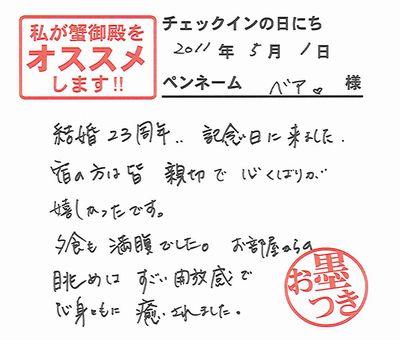 私が蟹御殿を
オススメ
します!!
チェックインの日にち
2011年 5月 1日
ペンネーム ベア♥ 様
結婚23周年.. 記念日に来ました.
宿の方は皆 親切で 心くばりが
嬉しかったです。
夕食も 満腹でした。 お部屋からの
眺めは すごい開放感で
心身ともに 癒されました。
お墨つき